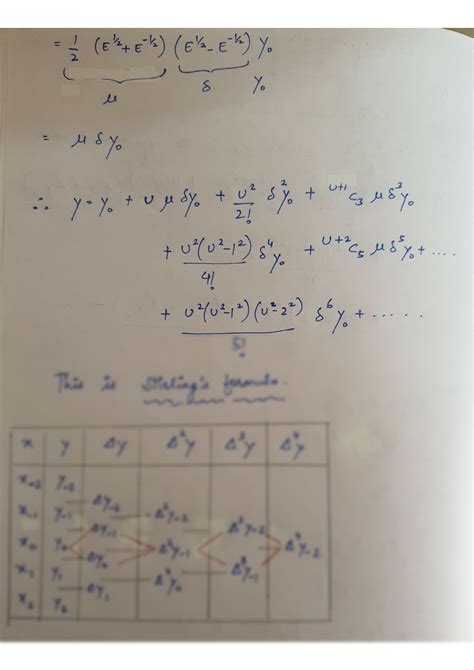 = 1/2 (E^{1/2} + E^{-1/2}) (E^{1/2} - E^{-1/2}) y₀
μ δ y₀
= μ δ y₀
∴ y = y₀ + U μ δy₀ + U²/2! δ²y₀ + ^{U+1}C₃ μδ³y₀
+ U²(U²-1²)/4! δ⁴y₀ + ^{U+2}C₅ μδ⁵y₀ + ....
+ U²(U²-1²)(U²-2²)/5! δ⁶y₀ + .....
This is Stirling's formula.
x y Δy Δ²y Δ³y Δ⁴y
x₋₂ y₋₂
Δy₋₂
x₋₁ y₋₁ Δ²y₋₂
Δy₋₁ Δ³y₋₂
x₀ y₀ Δ²y₋₁ Δ⁴y₋₂
Δy₀ Δ³y₋₁
x₁ y₁ Δ²y₀
Δy₁
x₂ y₂